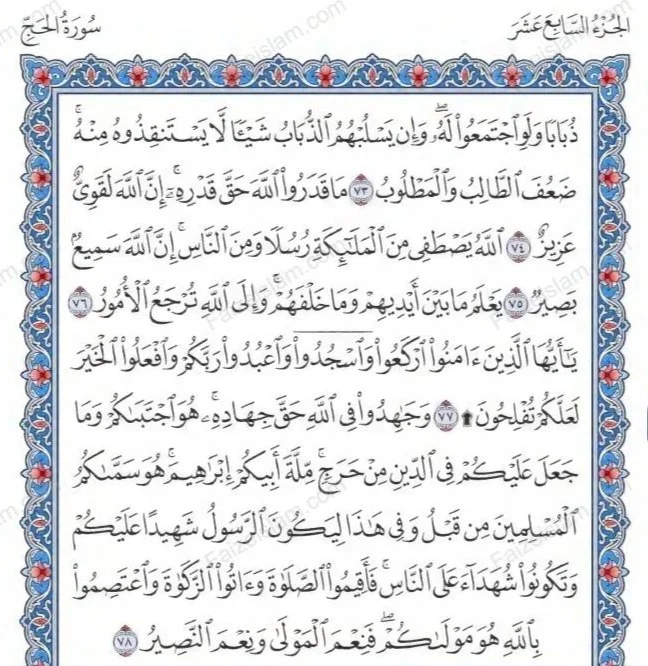 الجُزْءُ السَّابِعَ عَشَرَ
سُورَةُ الحَجِّ
ذُبَابٗا وَلَوِ ٱجۡتَمَعُواْ لَهُۥۖ وَإِن يَسۡلُبۡهُمُ ٱلذُّبَابُ شَيۡـٔٗا لَّا يَسۡتَنقِذُوهُ مِنۡهُۚ
ضَعُفَ ٱلطَّالِبُ وَٱلۡمَطۡلُوبُ ٧٣ مَا قَدَرُواْ ٱللَّهَ حَقَّ قَدۡرِهِۦٓۚ إِنَّ ٱللَّهَ لَقَوِيٌّ
عَزِيزٌ ٧٤ ٱللَّهُ يَصۡطَفِي مِنَ ٱلۡمَلَٰٓئِكَةِ رُسُلٗا وَمِنَ ٱلنَّاسِۚ إِنَّ ٱللَّهَ سَمِيعُۢ
بَصِيرٞ ٧٥ يَعۡلَمُ مَا بَيۡنَ أَيۡدِيهِمۡ وَمَا خَلۡفَهُمۡۚ وَإِلَى ٱللَّهِ تُرۡجَعُ ٱلۡأُمُورُ ٧٦
يَٰٓأَيُّهَا ٱلَّذِينَ ءَامَنُواْ ٱرۡكَعُواْ وَٱسۡجُدُواْ وَٱعۡبُدُواْ رَبَّكُمۡ وَٱفۡعَلُواْ ٱلۡخَيۡرَ
لَعَلَّكُمۡ تُفۡلِحُونَ۩ ٧٧ وَجَٰهِدُواْ فِي ٱللَّهِ حَقَّ جِهَادِهِۦۚ هُوَ ٱجۡتَبَىٰكُمۡ وَمَا
جَعَلَ عَلَيۡكُمۡ فِي ٱلدِّينِ مِنۡ حَرَجٖۚ مِّلَّةَ أَبِيكُمۡ إِبۡرَٰهِيمَۚ هُوَ سَمَّىٰكُمُ
ٱلۡمُسۡلِمِينَ مِن قَبۡلُ وَفِي هَٰذَا لِيَكُونَ ٱلرَّسُولُ شَهِيدًا عَلَيۡكُمۡ
وَتَكُونُواْ شُهَدَآءَ عَلَى ٱلنَّاسِۚ فَأَقِيمُواْ ٱلصَّلَوٰةَ وَءَاتُواْ ٱلزَّكَوٰةَ وَٱعۡتَصِمُواْ
بِٱللَّهِ هُوَ مَوۡلَىٰكُمۡۖ فَنِعۡمَ ٱلۡمَوۡلَىٰ وَنِعۡمَ ٱلنَّصِيرُ ٧٨
Faizeislam.com